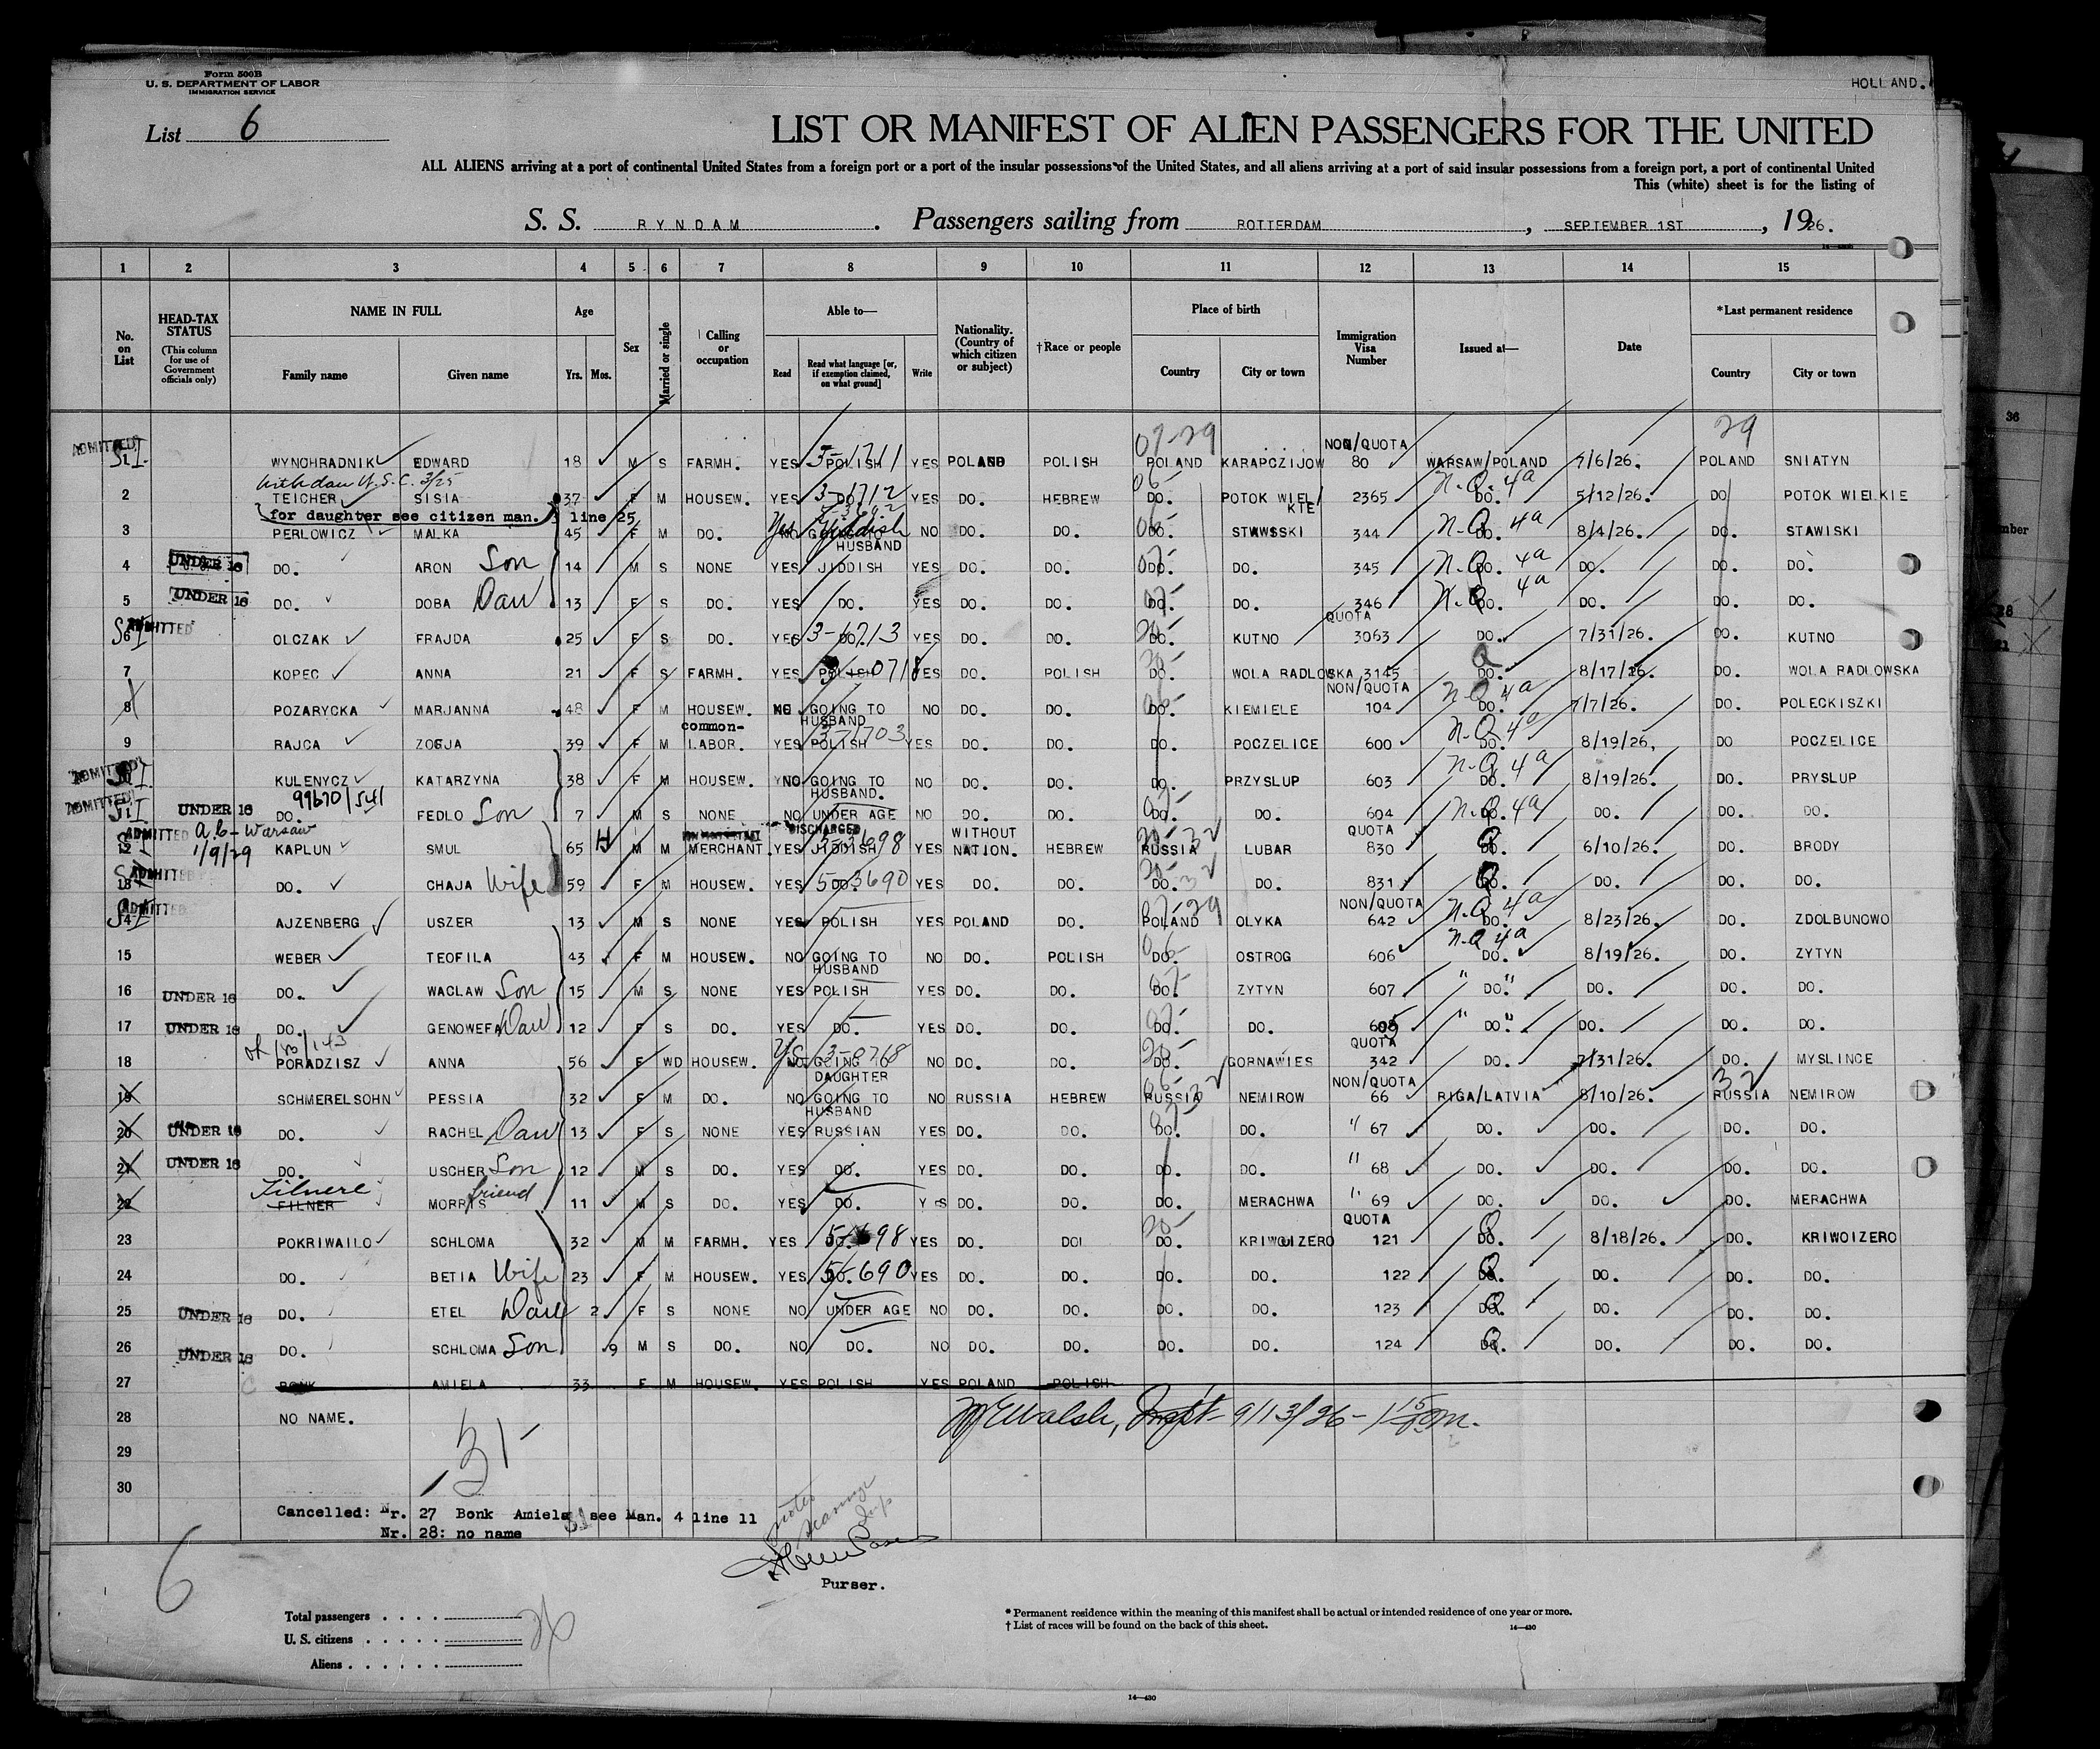 Form 500B
U. S. DEPARTMENT OF LABOR
IMMIGRATION SERVICE
HOLLAND.
List 6
LIST OR MANIFEST OF ALIEN PASSENGERS FOR THE UNITED
ALL ALIENS arriving at a port of continental United States from a foreign port or a port of the insular possessions of the United States, and all aliens arriving at a port of said insular possessions from a foreign port, a port of continental United
This (white) sheet is for the listing of
S. S. RYNDAM. Passengers sailing from ROTTERDAM, SEPTEMBER 1ST, 1926.
1 2 3 4 5 6 7 8 9 10 11 12 13 14 15
No. on List
HEAD-TAX STATUS (This column for use of Government officials only)
NAME IN FULL Family name Given name
Age Yrs. Mos.
Sex
Married or single
Calling or occupation
Able to— Read Read what language [or, if exemption claimed, on what ground] Write
Nationality. (Country of which citizen or subject)
†Race or people
Place of birth Country City or town
Immigration Visa Number
Issued at—
Date
*Last permanent residence Country City or town
07-29 29
ADMITTED SI WYNOHRADNIK EDWARD 18 M S FARMH. YES POLISH 3-1711 YES POLAND POLISH POLAND KARAPCZIJOW NON/QUOTA 80 WARSAW/POLAND 7/6/26. POLAND SNIATYN
with dau U.S.C. 3/25
2 TEICHER SISIA 37 F M HOUSEW. YES DO. 3-1712 YES DO. HEBREW DO. POTOK WIELKIE 2365 DO. N.Q. 4a 5/12/26. DO POTOK WIELKIE
for daughter see citizen man. 3 line 25
3 PERLOWICZ MALKA 45 F M DO. Yes NO GOING TO HUSBAND Yiddish NO DO. DO. DO. STAWSSKI 344 DO. N.Q. 4a 8/4/26. DO. STAWISKI
4 UNDER 16 DO. ARON Son 14 M S NONE YES JIDDISH YES DO. DO. DO. DO. 345 DO. N.Q. 4a DO. DO. DO.
5 UNDER 16 DO. DOBA Dau 13 F S DO. YES DO. YES DO. DO. DO. DO. 346 DO. N.Q. 4a DO. DO. DO.
6 SI ADMITTED OLCZAK FRAJDA 25 F S DO. YES DO. 3-1713 YES DO. DO. DO. KUTNO QUOTA 3063 DO. 7/31/26. DO. KUTNO
7 KOPEC ANNA 21 F S FARMH. YES POLISH YES DO. POLISH DO. WOLA RADLOWSKA 3145 DO. Q 8/17/26. DO. WOLA RADLOWSKA
8 POZARYCKA MARJANNA 48 F M HOUSEW. NO GOING TO HUSBAND NO DO. DO. DO. KIEMIELE NON/QUOTA 104 DO. N.Q. 4a 7/7/26. DO. POLECKISZKI
9 RAJCA ZOFJA 39 F M common-LABOR. YES POLISH YES DO. DO. DO. POCZELICE 600 DO. N.Q. 4a 8/19/26. DO POCZELICE
ADMITTED SI KULENYCZ KATARZYNA 38 F M HOUSEW. NO GOING TO HUSBAND. NO DO. DO. DO. PRZYSLUP 603 DO. N.Q. 4a 8/19/26. DO. PRYSLUP
99670/541
ADMITTED SI UNDER 16 DO. FEDLO Son 7 M S NONE NO UNDER AGE NO DO. DO. DO. DO. 604 DO. N.Q. 4a DO. DO. DO.
ADMITTED 12 1/9/29 KAPLUN SMUL 65 M M MERCHANT. DISCHARGED YES JIDDISH YES WITHOUT NATION. HEBREW RUSSIA LUBAR QUOTA 830 Q 6/10/26. DO. BRODY
ADMITTED 13 DO. CHAJA Wife 59 F M HOUSEW. YES DO. 5-3690 YES DO. DO. DO. DO. 831 DO. Q DO. DO. DO.
ADMITTED 14 AJZENBERG USZER 13 M S NONE YES POLISH YES POLAND DO. POLAND OLYKA NON/QUOTA 642 DO. N.Q. 4a 8/23/26. DO. ZDOLBUNOWO
15 WEBER TEOFILA 43 F M HOUSEW. NO GOING TO HUSBAND NO DO. POLISH DO. OSTROG 606 DO. N.Q. 4a 8/19/26. DO. ZYTYN
16 UNDER 16 DO. WACLAW Son 15 M S NONE YES POLISH YES DO. DO. DO. ZYTYN 607 " DO. " DO. DO. DO.
17 UNDER 16 DO. GENOWEFA Dau 12 F S DO. YES DO. YES DO. DO. DO. DO. 605 " DO. " DO. DO. DO.
18 PORADZISZ ANNA 56 F WD HOUSEW. Yes NO GOING DAUGHTER NO DO. DO. DO. GORNAWIES QUOTA 342 DO. 7/31/26. DO. MYSLINCE
19 SCHMERELSOHN PESSIA 32 F M DO. NO GOING TO HUSBAND NO RUSSIA HEBREW RUSSIA NEMIROW NON/QUOTA 66 RIGA/LATVIA 8/10/26. RUSSIA NEMIROW
20 UNDER 16 DO. RACHEL Dau 13 F S NONE YES RUSSIAN YES DO. DO. DO. DO. " 67 DO. DO. DO. DO.
21 UNDER 16 DO. USCHER Son 12 M S DO. YES DO. YES DO. DO. DO. DO. " 68 DO. DO. DO. DO.
22 Filnere FILNER MORRIS friend 11 M S DO. YES DO. YES DO. DO. DO. MERACHWA " 69 DO. DO. DO. MERACHWA
23 POKRIWAILO SCHLOMA 32 M M FARMH. YES DO. YES DO. DO! DO. KRIWOIZERO QUOTA 121 DO. Q 8/18/26. DO. KRIWOIZERO
24 DO. BETIA Wife 23 F M HOUSEW. YES DO. YES DO. DO. DO. DO. 122 DO. Q DO. DO. DO.
25 UNDER 16 DO. ETEL Dau 2 F S NONE NO UNDER AGE NO DO. DO. DO. DO. 123 DO. Q DO. DO. DO.
26 UNDER 16 DO. SCHLOMA Son 9 M S DO. NO DO. NO DO. DO. DO. DO. 124 DO. Q DO. DO. DO.
27 BONK AMIELA 33 F M HOUSEW. YES POLISH YES POLAND POLISH
28 NO NAME. Walsh, Inspt- 9/13/26-
29
30
31-
Cancelled: Nr. 27 Bonk Amiela see Man. 4 line 11
Nr. 28: no name
6
Purser.
Total passengers
U. S. citizens
Aliens
26
* Permanent residence within the meaning of this manifest shall be actual or intended residence of one year or more.
† List of races will be found on the back of this sheet.
14—430
14—430
36